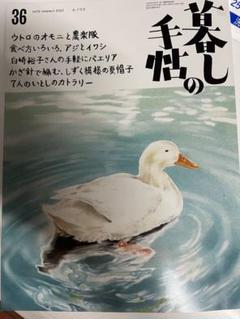 36
暮しの手帖
ウトロのオモニと農楽隊
食べ方いろいろ、アジとイワシ
白崎裕子さんの手軽にパエリア
かぎ針で編む、しずく模様の夏帽子
7人のいとしのカトラリー